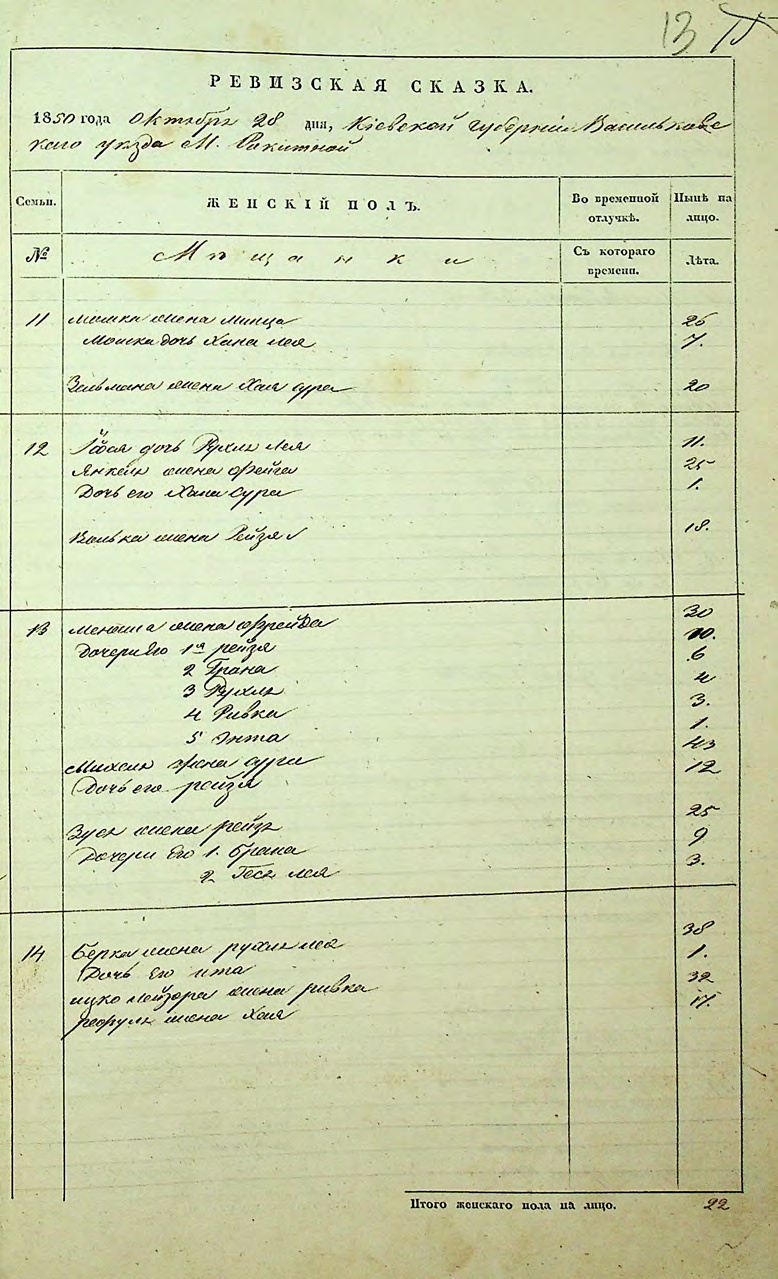 13
РЕВИЗСКАЯ СКАЗКА.
1850 года Октября 28 дня, Кіевской губерніи Васильковс
каго уезда М. Ракитной
Семьи. ЖЕНСКІЙ ПОЛЪ. Во временной отлучкѣ. Нынѣ на лицо.
№ Мѣщанки Съ котораго времени. Лѣта.
11 Мошки жена Минца 26
Мошки дочь Хана Лея 7.
Зельмана жена Хая Сура 20
12 дочь Рухля Лея 11.
Янкеля жена Фейга 25
Дочь его Хана Сура 1.
Волька жена Рейзя 18.
13 жена Фрейда 30
Дочери его 1я Рейзя 10.
2 Грана 6
3 Рухля 4
4 Ривка 3.
5 Энта 1.
Михеля жена Сура 43
Дочь его Рейзя 12
Зуся жена Рейзя 25
Дочери его 1. Брана 9
2 Геся Лея 3.
14 Берка жена Рухля Лея 38
Дочь его Ита 1.
Ицко Лейзора жена Ривка 32
жена Хая 17.
Итого женскаго пола на лицо. 22